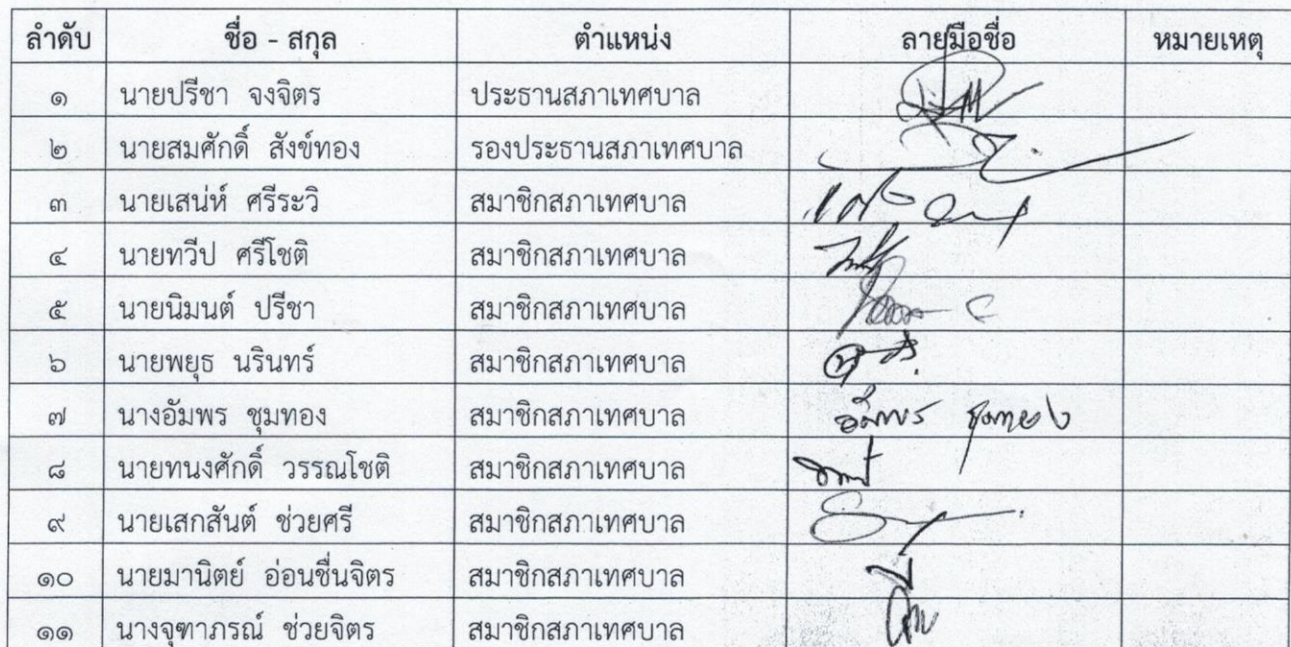 ลำดับ ชื่อ - สกุล ตำแหน่ง ลายมือชื่อ หมายเหตุ
๑ นายปรีชา จงจิตร ประธานสภาเทศบาล
๒ นายสมศักดิ์ สังข์ทอง รองประธานสภาเทศบาล
๓ นายเสน่ห์ ศรีระวิ สมาชิกสภาเทศบาล
๔ นายทวีป ศรีโชติ สมาชิกสภาเทศบาล
๕ นายนิมนต์ ปรีชา สมาชิกสภาเทศบาล
๖ นายพยุธ นรินทร์ สมาชิกสภาเทศบาล
๗ นางอัมพร ชุมทอง สมาชิกสภาเทศบาล อัมพร ชุมทอง
๘ นายทนงศักดิ์ วรรณโชติ สมาชิกสภาเทศบาล
๙ นายเสกสันต์ ช่วยศรี สมาชิกสภาเทศบาล
๑๐ นายมานิตย์ อ่อนชื่นจิตร สมาชิกสภาเทศบาล
๑๑ นางจุฑาภรณ์ ช่วยจิตร สมาชิกสภาเทศบาล